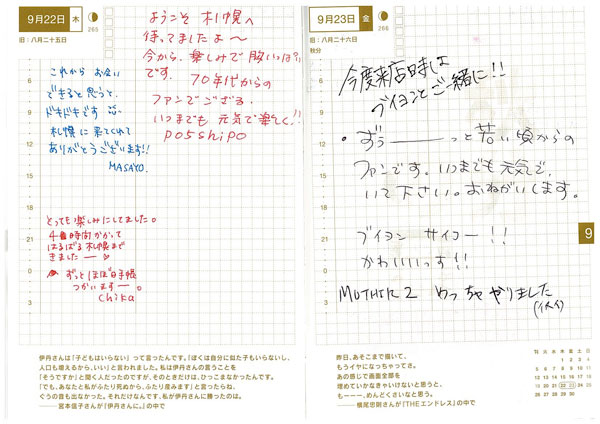 9月22日 木
265
旧：八月二十五日
ようこそ 札幌へ
待ってましたよ〜
今から、楽しみで胸いっぱい
です。 70年代からの
ファンでござる。
いつまでも 元気で楽しく!!
po55hipo
これから お会い
できると思うと、
ドキドキです
札幌に来てくれて
ありがとうございます!!
MASAYO.
とっても楽しみにしてました。
4時間かかって
はるばる札幌まで
きましたー
ずっとほぼ日手帳
つかいますー。
Chika
伊丹さんは「子どもはいらない」って言ったんです。「ぼくは自分に似た子もいらないし、
人口も増えるから、いい」と言われました。私は伊丹さんの言うことを
「そうですか」と聞く人だったのですが、そのときだけは、ひっこまなかったんです。
「でも、あなたと私がふたり死めから、ふたり産みます」と言ったらね、
ぐうの音も出なかった。それだけなんです、私が伊丹さんに勝ったのは。
——宮本信子さんが『伊丹さんに。』の中で
9月23日 金
266
旧：八月二十六日
秋分
今度来店時は
ブイヨンとご一緒に!!
・ずぅ———っと若い頃からの
ファンです。いつまでも元気で、
いて下さい。おねがいします。
ブイヨン サイコー!!
かわいいっす!!
MOTHER2 めっちゃやりました
9
昨日、あそこまで描いて、
もうイヤになっちゃってさ。
あの感じで画面全部を
埋めていかなきゃいけないと思うと、
もーーー、めんどくさいなと思う。
——横尾忠則さんが『THE エンドレス』の中で
月 火 水 木 金 土 日
1 2 3 4
5 6 7 8 9 10 11
12 13 14 15 16 17 18
19 20 21 22 23 24 25
26 27 28 29 30